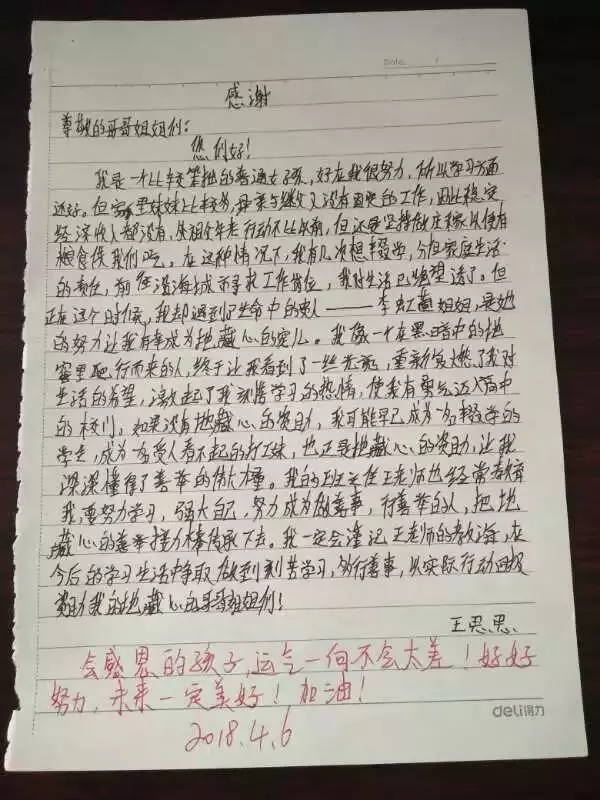 Date.    /
感谢
尊敬的哥哥姐姐们：
您们好！
我是一个比较笨拙的普通女孩，好在我很努力，所以学习方面
还好。但家里妹妹上比较多，母亲与继父又没有固定的工作，因此稳定
经济收入都没有，外祖父年老行动不比从前，但还是坚持做庄稼以便有
粮食供我们吃。在这种情况下，我有几次想辍学，分担家庭生活
的责任，前往沿海城市寻找工作岗位，我对生活已绝望透了。但
正在这个时候，我却遇到了生命中的贵人——李虹 姐姐，是她
的努力让我有幸成为地藏心的宠儿。我像一个在黑暗中的地
窖里爬行而来的人，终于让我看到了一丝光亮，重新复燃了我对
生活的希望，激起了我刻苦学习的热情，使我有勇气迈入高中
的校门。如果没有地藏心的资助，我可能早已成为一名辍学的
学生，成为一名受人看不起的打工妹，也正是地藏心的资助，让我
深深懂得了善举的伟大 。我的班主任王老师也经常教育
我，要努力学习，强大自己，努力成为做善事，行善举的人，把地
藏心的善举接力棒传承下去。我一定会谨记王老师的教诲，在
今后的学习生活中争取做到刻苦学习，多行善事，以实际行动回报
资助我的地藏心的哥哥姐姐们！
王思思
会感恩的孩子，运气一向不会太差！好好
努力，未来一定美好！加油！
2018.4.6
deli得力